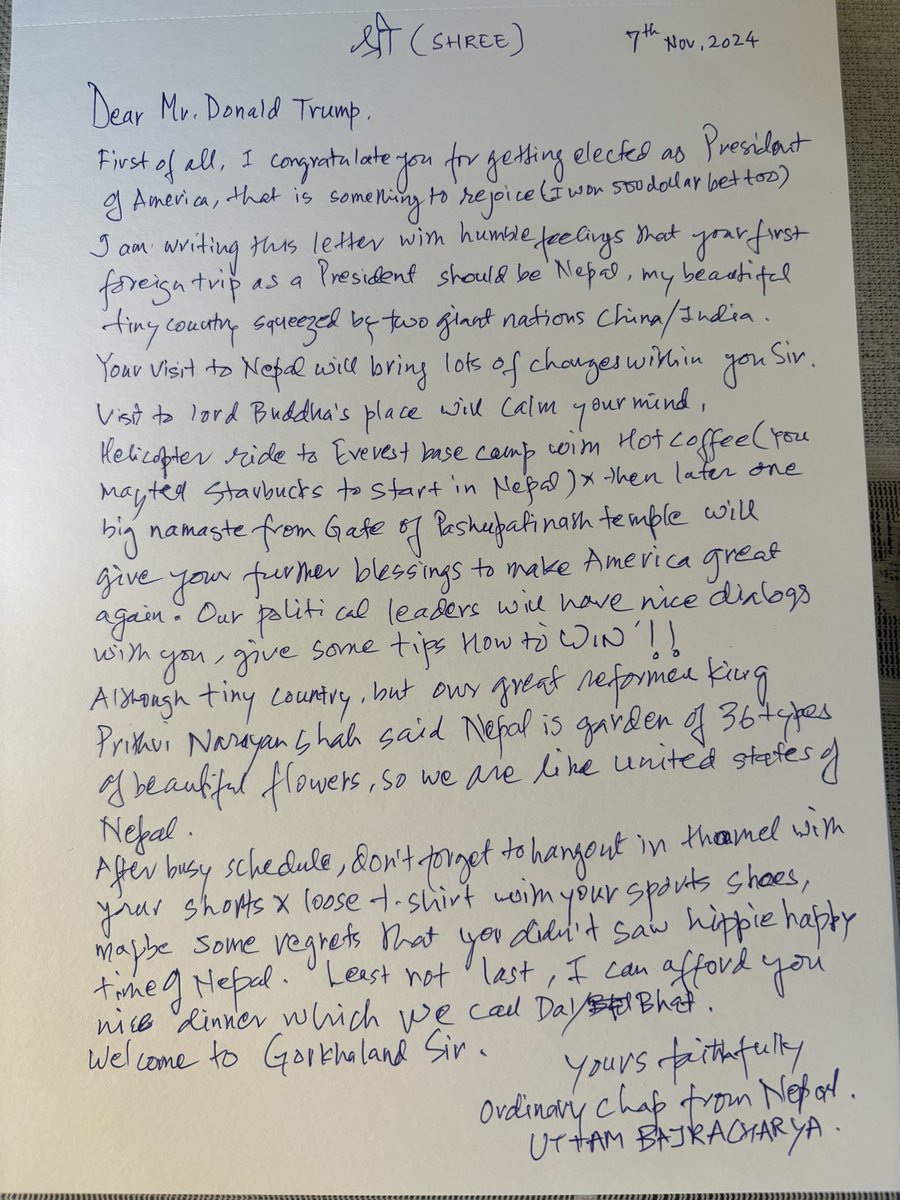 श्री (SHREE)
7th Nov, 2024
Dear Mr. Donald Trump,
First of all, I congratulate you for getting elected as President
of America, that is something to rejoice (I won 500 dollar bet too)
I am writing this letter with humble feelings that your first
foreign trip as a President should be Nepal, my beautiful
tiny country squeezed by two giant nations China/India.
Your visit to Nepal will bring lots of changes within you Sir.
Visit to lord Buddha's place will calm your mind,
Helicopter ride to Everest base camp with Hot coffee (You
may Starbucks to start in Nepal) x then later one
big namaste from Gate of Pashupatinath temple will
give your further blessings to make America great
again. Our political leaders will have nice dialogs
with you, give some tips How to WIN !!
Although tiny country, but our great reformed King
Prithvi Narayan Shah said Nepal is garden of 36 types
of beautiful flowers, so we are like united states of
Nepal.
After busy schedule, don't forget to hangout in thamel with
your shorts x loose t-shirt with your sports shoes,
maybe some regrets that you didn't saw hippie happy
time of Nepal. Least not last, I can afford you
nice dinner which we call Dal Bhat.
Welcome to Gorkhaland Sir.
Yours faithfully
Ordinary Chap from Nepal.
UTTAM BAJRACHARYA.